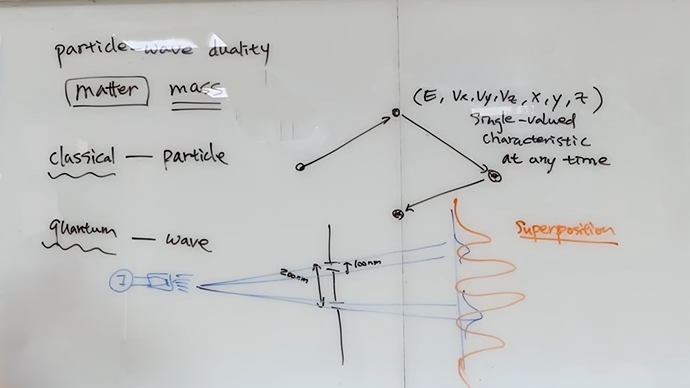 particle-wave duality
matter mass
(E, Vx, Vy, Vz, x, y, z)
single-valued
characteristic
at any time
classical — particle
quantum — wave
Superposition
I
200nm
100nm